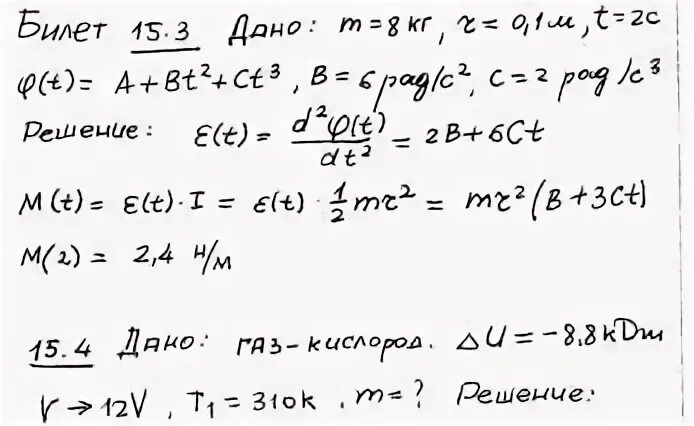 Билет 15.3 Дано: m = 8 кг, r = 0,1 м, t = 2c
φ(t) = A + Bt² + Ct³, B = 6 рад/c², C = 2 рад/c³
Решение: ε(t) = d²φ(t)/dt² = 2B + 6Ct
M(t) = ε(t)·I = ε(t)·1/2 mr² = mr²(B + 3Ct)
M(2) = 2,4 н/м
15.4 Дано: газ-кислород. ΔU = -8,8 кДж
V → 12V, T₁ = 310к. m = ? Решение: